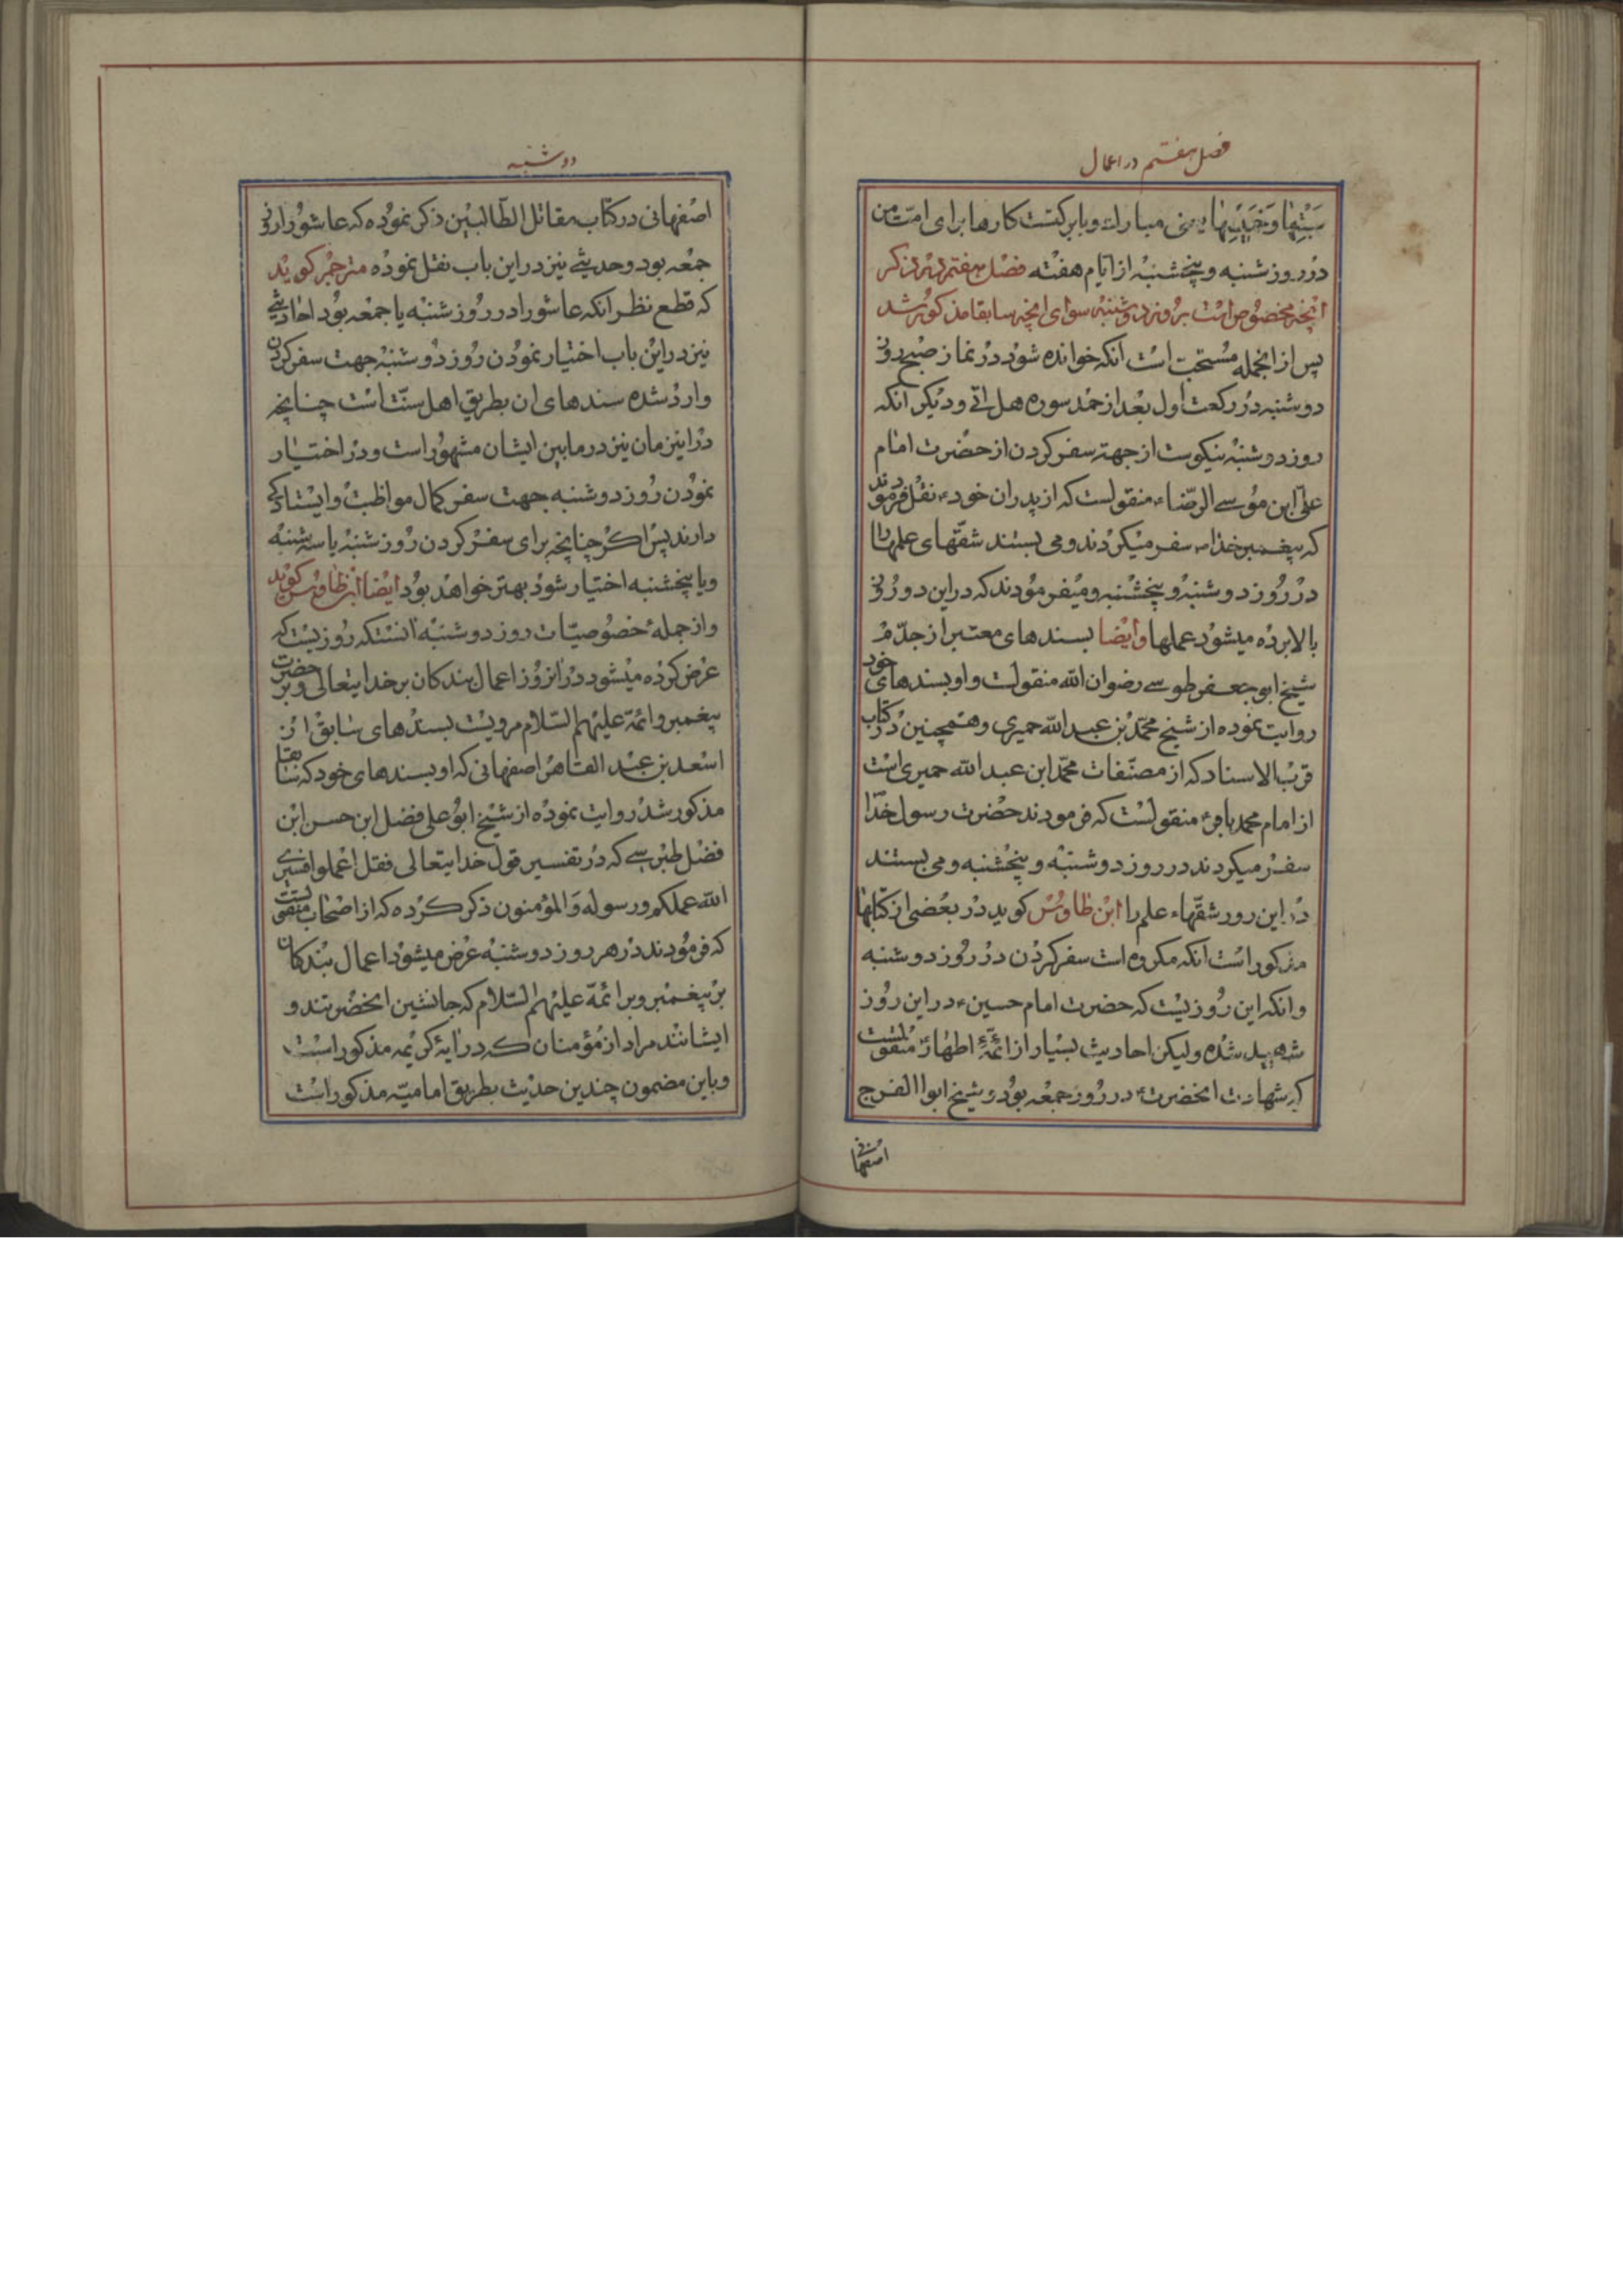 فصل هفتم در اعمال
سَبْتِهٰا وَخَمِیْسِهٰا یعنی مبارک و بابرکتست کارها برای امّت من
در روز شنبه و پنجشنبه از ایّام هفته فصل هفتم در ذکر
انچه مخصوص است بروز دوشنبه سوای انچه سابقا مذکور شد
پس از انجمله مستحب است انکه خوانده شود در نماز صبح روز
دوشنبه در رکعت اول بعد از حمد سوره هل اتی و دیکر انکه
روز دوشنبه نیکوست از جهتہ سفر کردن از حضرت امام
علی ابن موسی الرضاء منقولست که از پدران خودء نقل فرمودند
که پیغمبر خداص سفر میکردند و می بستند شقّهای علمها را
در روز دوشنبه و پنجشنبه و میفرمودند که در این دو روز
بالا برده میشود عملها وایضا بسندهای معتبر از جدّم
شیخ ابو جعفر طوسی رضوان الله منقولست و او بسندهای خود
روایت نموده از شیخ محمّد بن عبد الله حمیری و همچنین در کتاب
قرب الاسناد که از مصنّفات محمّد ابن عبد الله حمیری است
از امام محمد باقرء منقولست که فرمودند حضرت رسول خدا
سفر میکردند در روز دوشنبه و پنجشنبه و می بستند
در این روز شقّهاء علم را ابن طاوس کوید در بعضی از کتابها
مذکور است انکه مکروه است سفر کردن در روز دوشنبه
وانکه این روزیست که حضرت امام حسینء در این روز
شهید شده ولیکن احادیث بسیار از ائمّهٔ اطهار منقولست
که شهادت انحضرتء در روز جمعه بود و شیخ ابوا الفرج
اصفهانی
دوشنبه
اصفهانی در کتاب مقاتل الطّالبین ذکر نموده که عاشورا روز
جمعه بود و حدیثی نیز در این باب نقل نموده مترجم کوید
که قطع نظر انکه عاشورا در روز شنبه یا جمعه بود احادیثی
نیز در این باب اختیار نمودن روز دوشنبه جهت سفر کردن
وارد شده سندهای ان بطریق اهل سنّت است چنانچه
در این زمان نیز در ما بین ایشان مشهور است و در اختیار
نمودن روز دوشنبه جهت سفر کمال مواظبت و ایستادکی
دارند پس اکر چنانچه برای سفر کردن روز شنبه یا سه شنبه
ویا پنجشنبه اختیار شود بهتر خواهد بود ایضا ابن طاوس کوید
واز جملهٔ خصوصیّات روز دوشنبه انستکه روزیست که
عرض کرده میشود در انروز اعمال بندکان بر خدایتعالی و بر حضرت
پیغمبر و ائمّهٔ علیهم السّلام مرویست بسندهای سابق از
اسعد بن عبد القاهر اصفهانی که او بسندهای خود که سابقا
مذکور شد روایت نموده از شیخ ابو علی فضل ابن حسن ابن
فضل طبرسی که در تفسیر قول خدایتعالی فقل اعملوا فسیری
الله عملکم ورسوله والمؤمنون ذکر کرده که از اصحاب منقولست
که فرمودند در هر روز دوشنبه عرض میشود اعمال بندکان
بر پیغمبر و بر ائمّهٔ علیهم السّلام که جانشین انحضرتند و
ایشانند مراد از مؤمنان که در ایهٔ کریمه مذکور است
و باین مضمون چندین حدیث بطریق امامیّه مذکور است